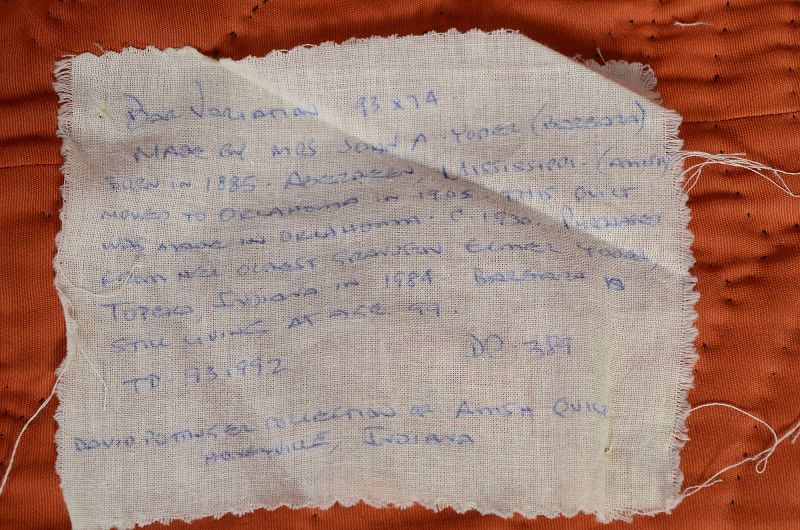 Bar Variation 93 x 74.
Made by Mrs. John A. Yoder (Barbara)
Born in 1885. Aberdeen, Mississippi. (Amish)
Moved to Oklahoma in 1905. This quilt
was made in Oklahoma. C 1930. Purchased
from her oldest grandson Elmer Yoder,
Topeka, Indiana in 1984. Barbara is
still living at age 99.
DP-389
TD-93.1992
David Pottinger Collection of Amish Quilt
Honeyville, Indiana